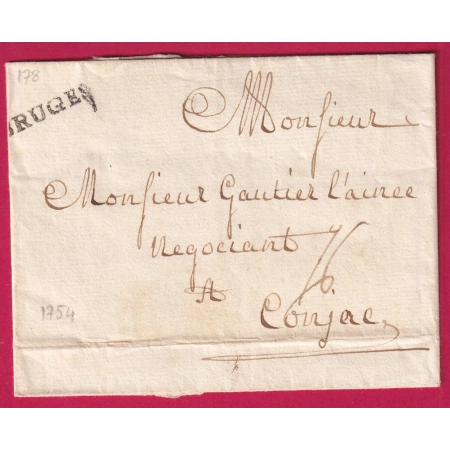 178
BRUGES
Monsieur
Monsieur Gautier l'ainee
Negociant
A
Conjac
1754